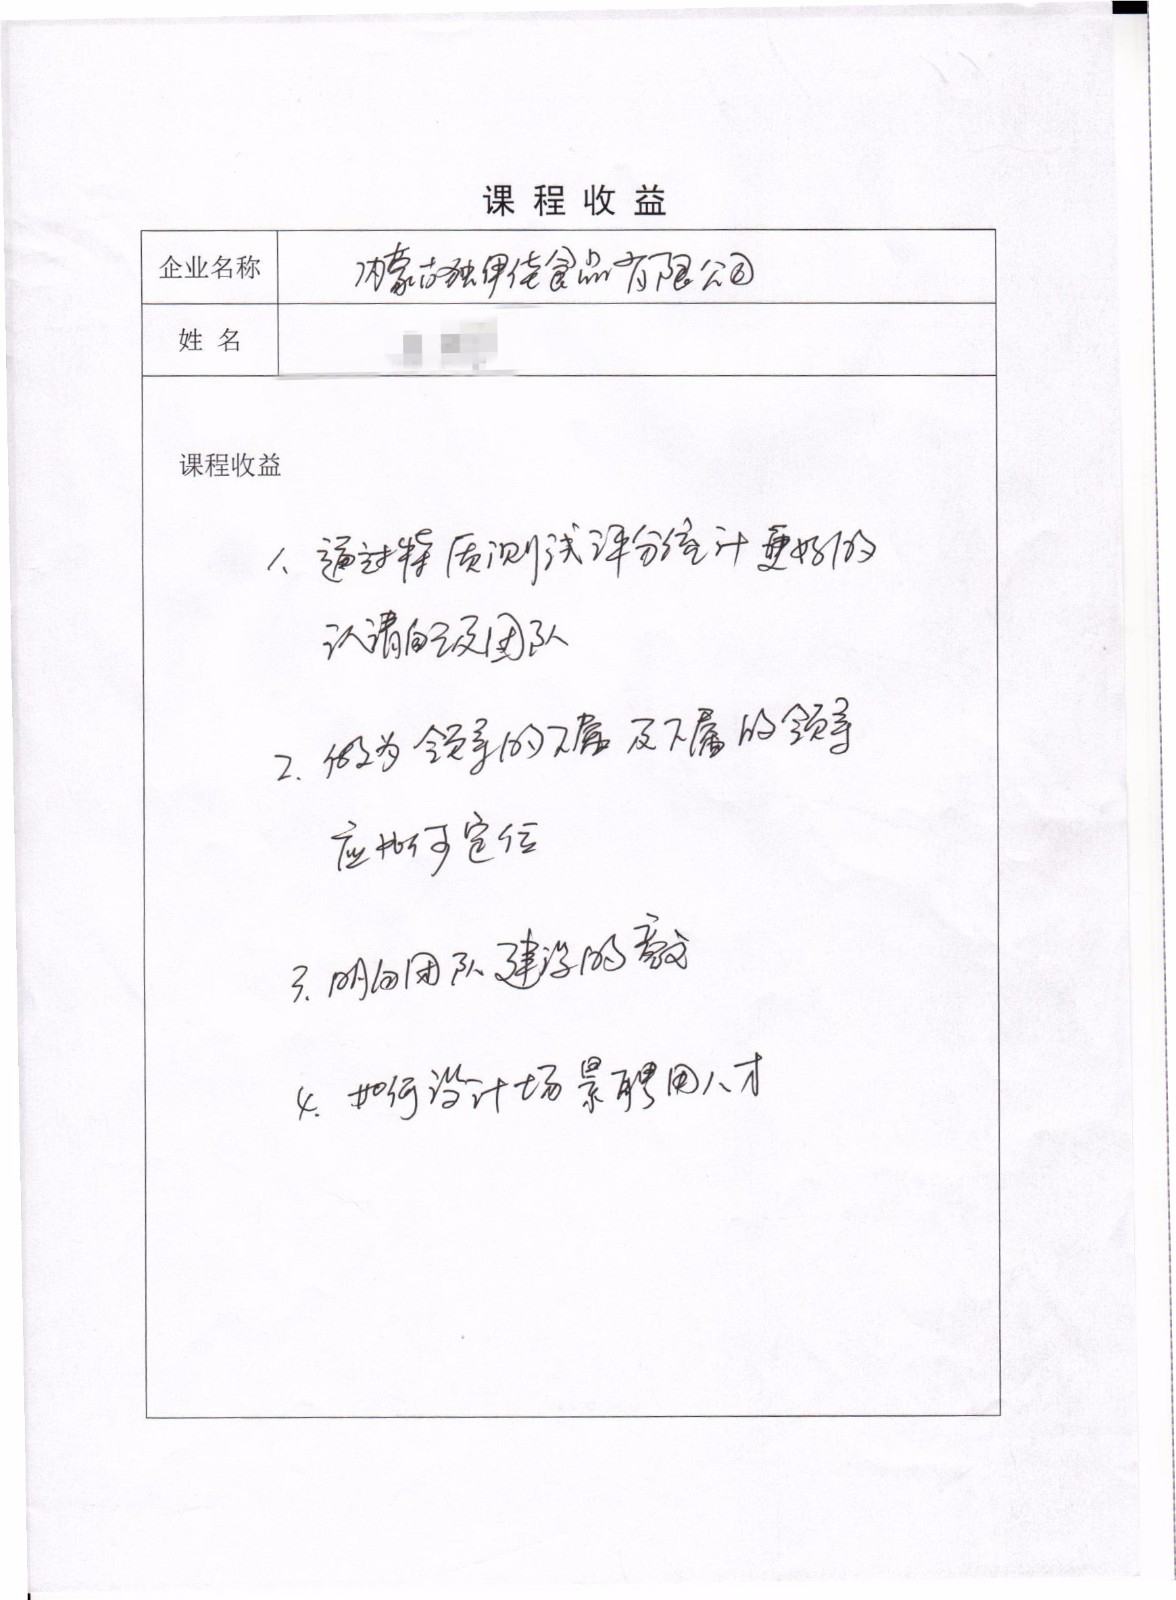 课程收益
企业名称 内蒙古独甲佳食品有限公司
姓名
课程收益
1、通过特质测试评分统计更好的
认清自己及团队
2、做为领导的下属及下属的领导
应如何定位
3、明白团队建设的意义
4、如何设计场景聘用人才